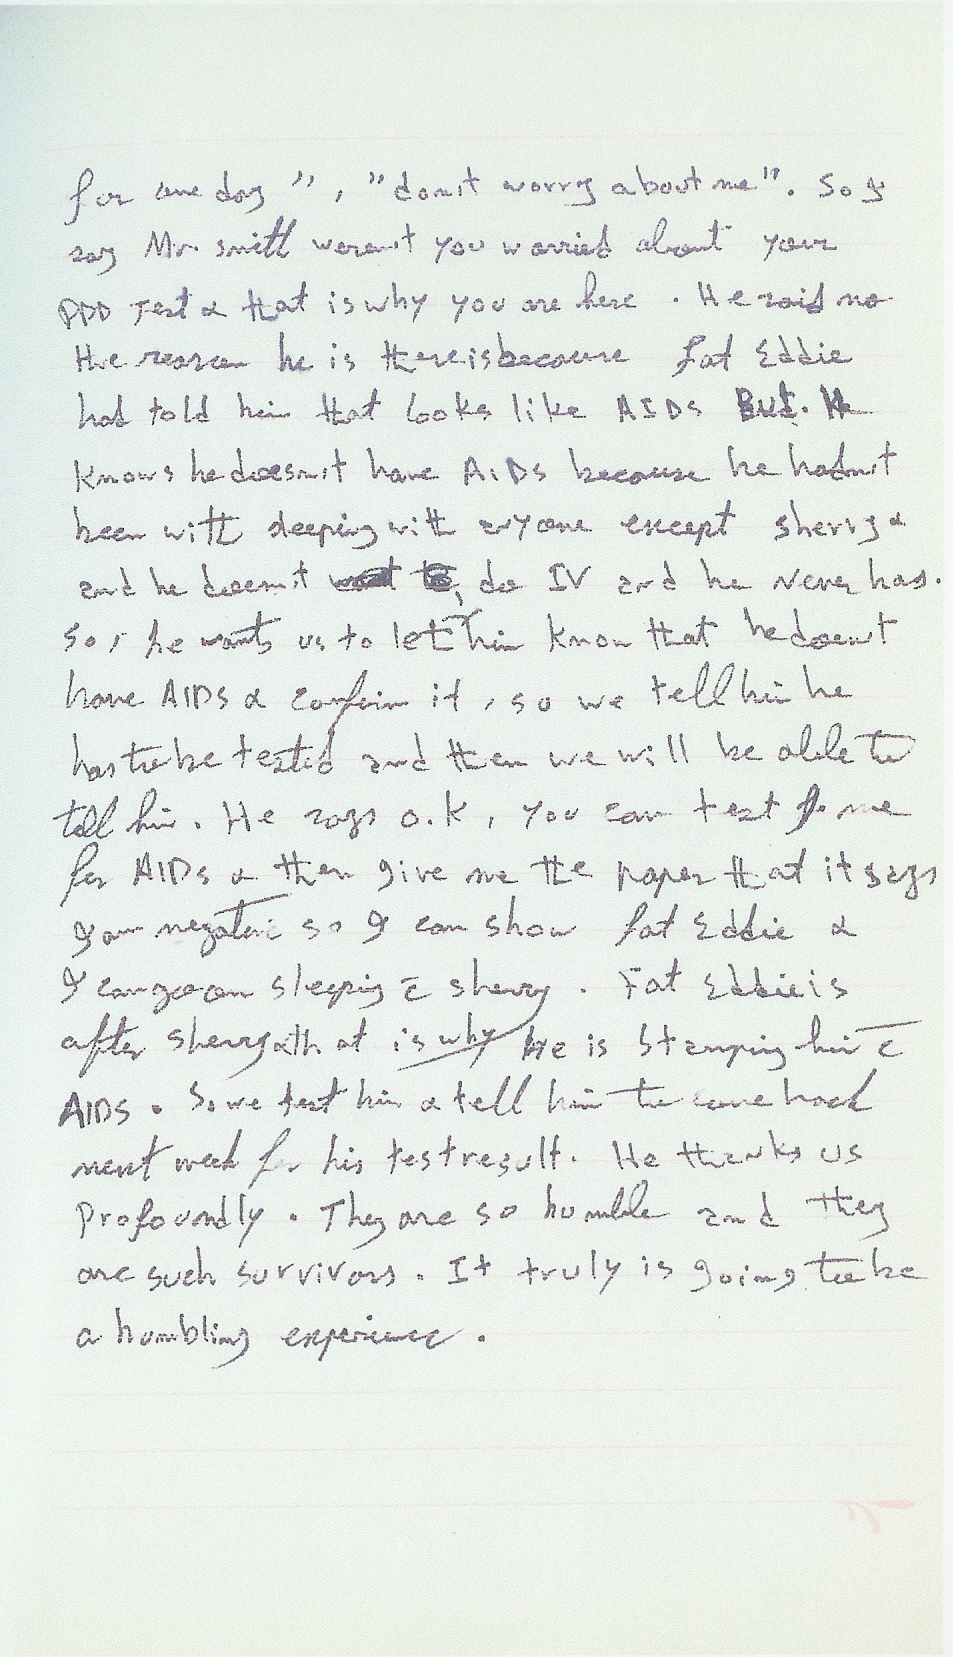 for one day", "don't worry about me". So I
say Mr. Smith weren't you worried about your
PPD Test & that is why you are here. He said no
the reason he is there is because Fat Eddie
had told him that looks like AIDS But. He
knows he doesn't have AIDS because he hadn't
been with sleeping with anyone except Sherry &
and he doesn't do IV and he never has.
So, he wants us to let him know that he doesn't
have AIDS & confirm it, so we tell him he
has to be tested and then we will be able to
tell him. He says O.K, you can test me
for AIDS & then give me the paper that it says
I am negative so I can show Fat Eddie &
I can go on sleeping c̄ sherry. Fat Eddie is
after sherry & that is why He is Stamping him c̄
AIDS. So we test him & tell him to come back
next week for his test result. He thanks us
Profoundly. They are so humble and they
are such survivors. It truly is going to be
a humbling experience.